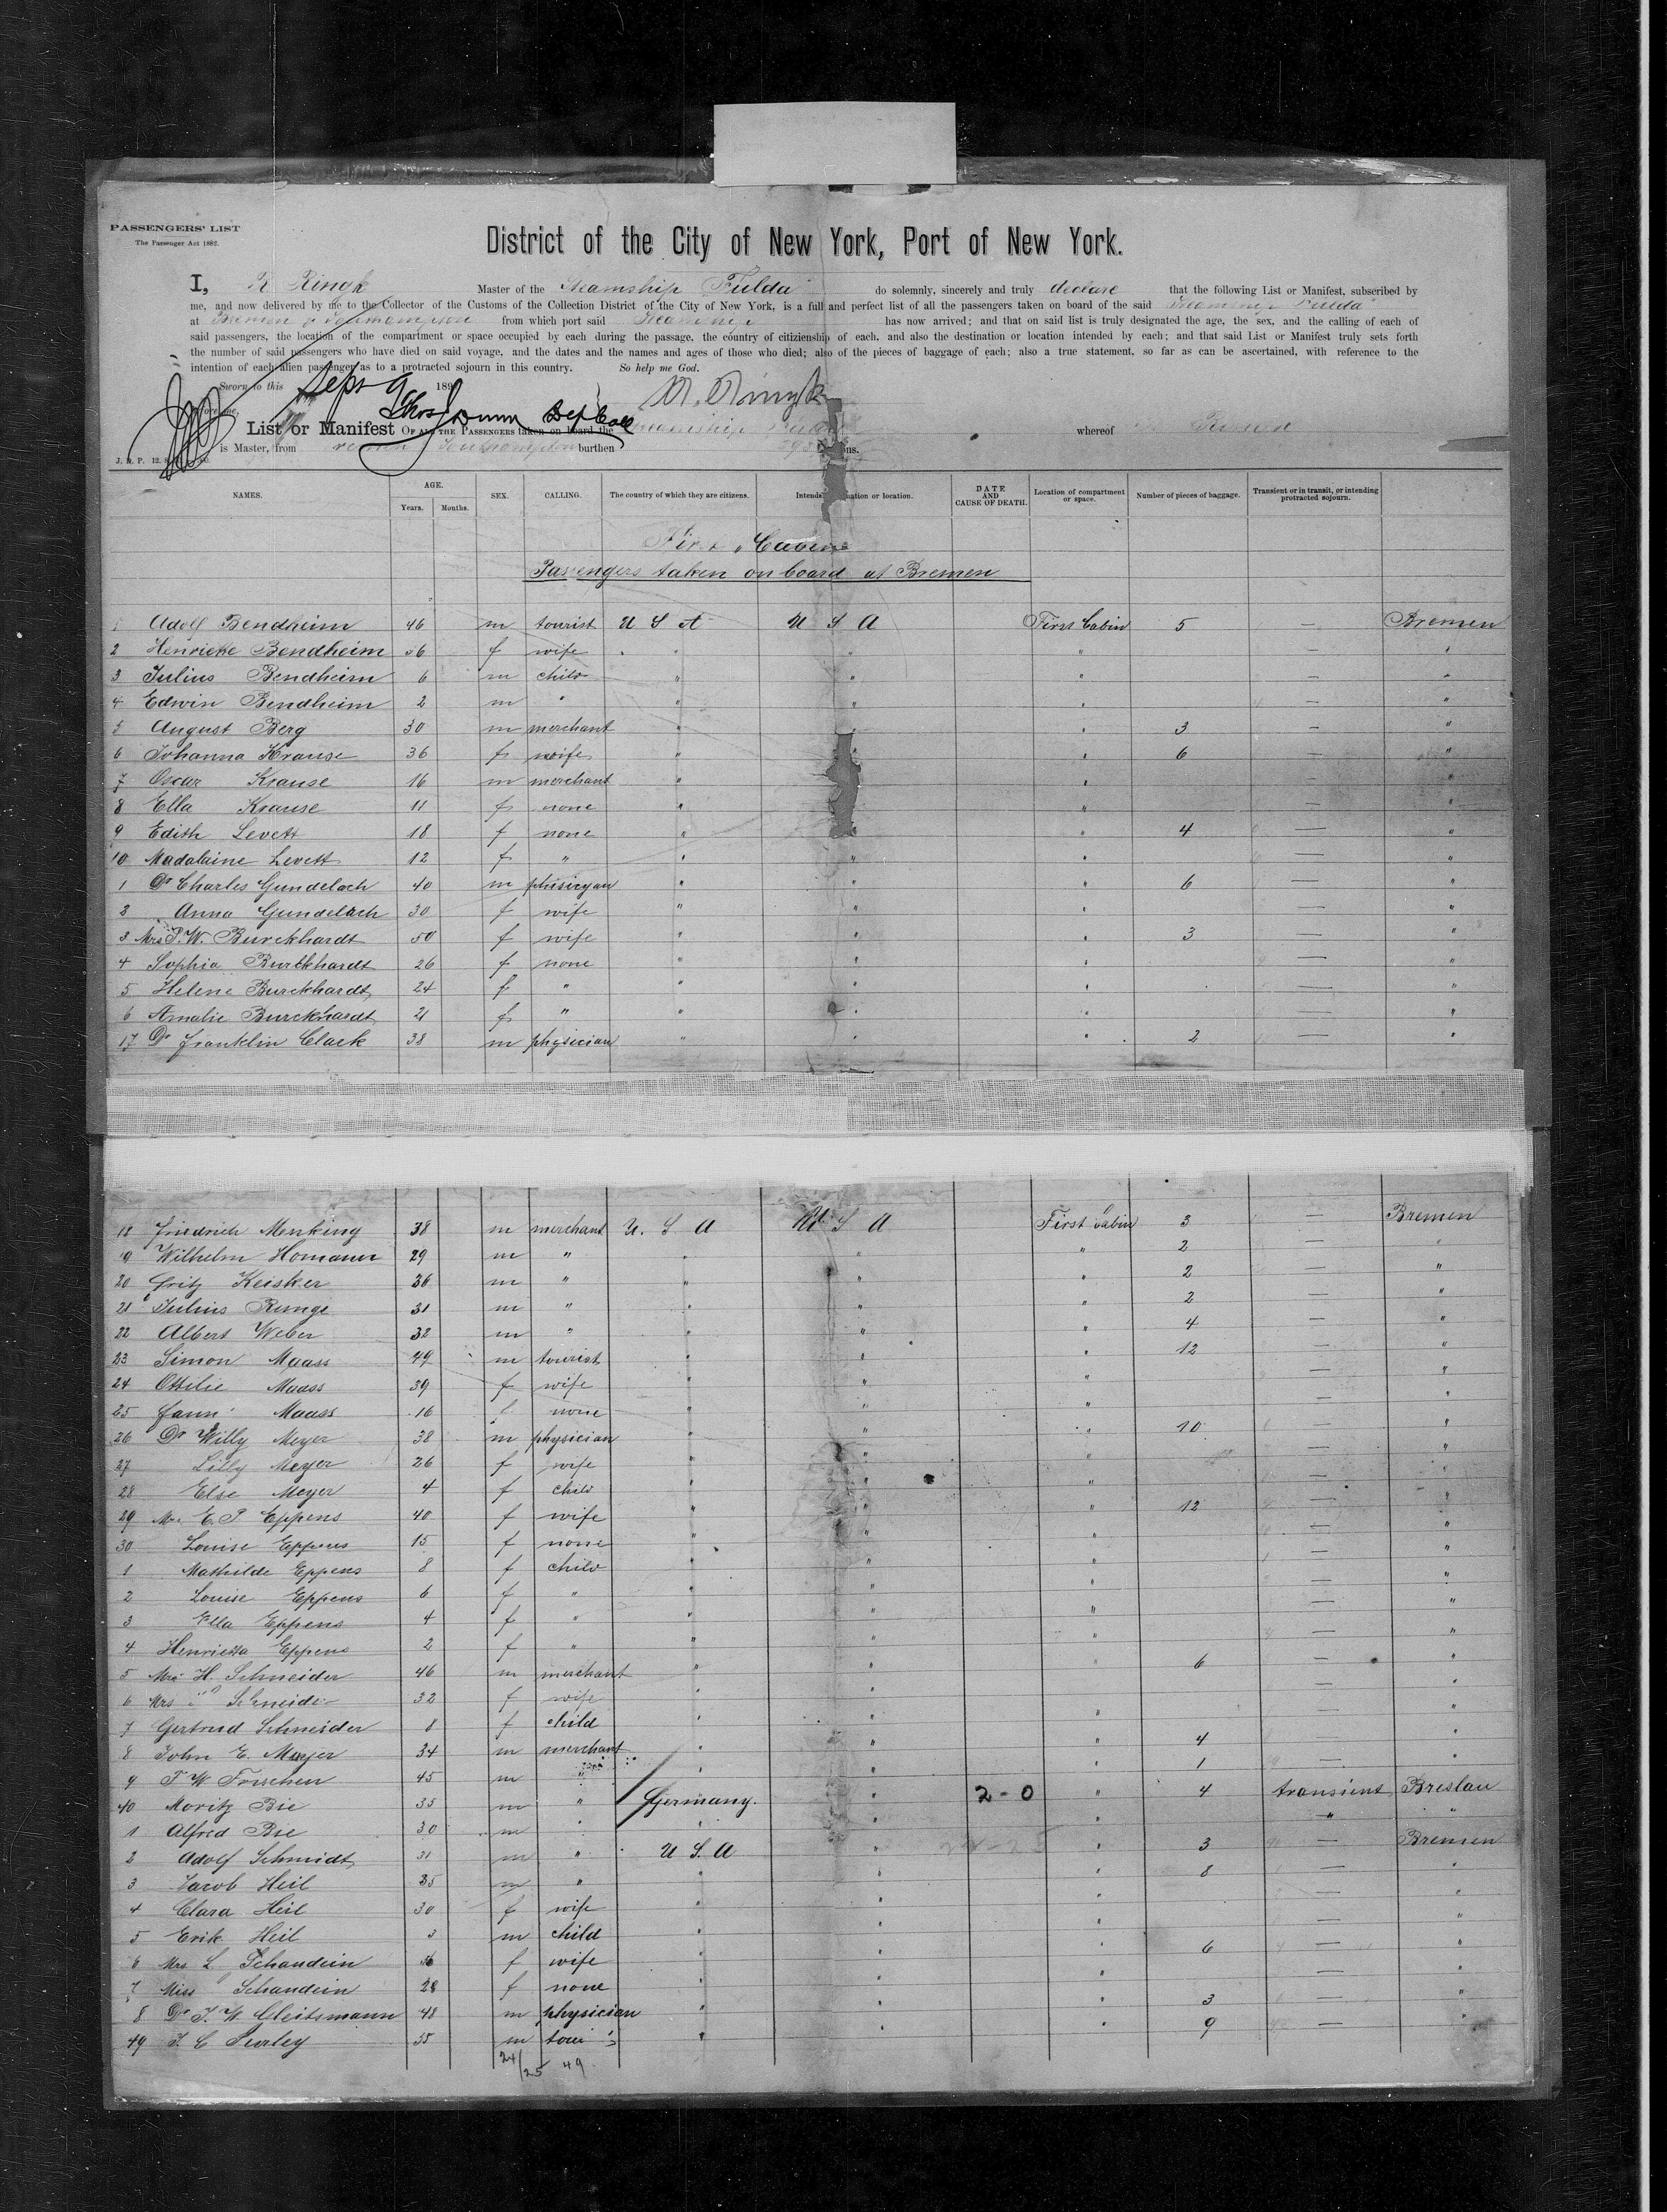 PASSENGERS' LIST
The Passenger Act 1882.
District of the City of New York, Port of New York.
I, R Ringk Master of the Steamship Fulda do solemnly, sincerely and truly declare that the following List or Manifest, subscribed by
me, and now delivered by me to the Collector of the Customs of the Collection District of the City of New York, is a full and perfect list of all the passengers taken on board of the said Steamship Fulda
at Bremen & Southampton from which port said Steamship has now arrived; and that on said list is truly designated the age, the sex, and the calling of each of
said passengers, the location of the compartment or space occupied by each during the passage, the country of citizienship of each, and also the destination or location intended by each; and that said List or Manifest truly sets forth
the number of said passengers who have died on said voyage, and the dates and the names and ages of those who died; also of the pieces of baggage of each; also a true statement, so far as can be ascertained, with reference to the
intention of each alien passenger as to a protracted sojourn in this country. So help me God.
Sworn to this Sept 9 189
R. Ringk
Thos Dunn Dep Coll
List or Manifest OF ALL THE PASSENGERS taken on board the Steamship whereof
is Master, from Southampton burthen tons.
NAMES. AGE. SEX. CALLING. The country of which they are citizens. DATE AND CAUSE OF DEATH. Location of compartment or space. Number of pieces of baggage. Transient or in transit, or intending protracted sojourn.
Years. Months.
First Cabin
Passengers taken on board at Bremen
1 Adolf Bendheim 46 m tourist U S A U S A First Cabin 5 — Bremen
2 Henriette Bendheim 36 f wife " " " — "
3 Julius Bendheim 6 m child " " " — "
4 Edwin Bendheim 2 m " " " " — "
5 August Berg 30 m merchant " " 3 — "
6 Johanna Krause 36 f wife " " 6 — "
7 Oscar Krause 16 m merchant " " — "
8 Ella Krause 11 f none " " — "
9 Edith Levett 18 f none " " 4 — "
10 Madalaine Levett 12 f " " " " — "
1 Dr Charles Gundelach 40 m phisicyan " " " 6 — "
2 Anna Gundelach 30 f wife " " " — "
3 Mrs P. W. Burckhardt 50 f wife " " " 3 — "
4 Sophia Burckhardt 26 f none " " " — "
5 Helene Burckhardt 24 f " " " " — "
6 Amalie Burckhardt 21 f " " " " — "
17 Dr Franklin Clark 38 m physician " " " 2 — "
18 Friedrich Menking 38 m merchant U. S. A U S A First Cabin 3 — Bremen
19 Wilhelm Homann 29 m " " " " 2 — "
20 Fritz Keisker 36 m " " " " 2 — "
21 Julius Runge 31 m " " " " 2 — "
22 Albert Weber 32 m " " " " 4 — "
23 Simon Maass 49 m tourist " " " 12 — "
24 Ottilie Maass 39 f wife " " " — "
25 Maass 16 f none " " " — "
26 Dr Willy Meyer 38 m physician " " " 10 — "
27 Lilly Meyer 26 f wife " " " — "
28 Else Meyer 4 f child " " " — "
29 Mrs E. P Eppens 40 f wife " " " 12 — "
30 Louise Eppens 15 f none " " " — "
1 Mathilde Eppens 8 f child " " " — "
2 Louise Eppens 6 f " " " " — "
3 Ella Eppens 4 f " " " " — "
4 Henrietta Eppens 2 f " " " " — "
5 H. Schneider 46 m merchant " " " 6 — "
6 Mrs Schneider 32 f wife " " — "
7 Gertrud Schneider 8 f child " " " — "
8 John E. Mayer 34 m merchant " " " 4 "
9 45 m " " " " 1 — "
40 Moritz Bie 35 m " Germany. " 2-0 " 4 transient Breslau
1 Alfred Bie 30 m " " " " "
2 Adolf Schmidt 31 m " U S A " " 3 — Bremen
3 Jacob Heil 35 m " " " " 8 — "
4 Clara Heil 30 f wife " " " — "
5 Erik Heil 3 m child " " " — "
6 Mrs L Schandein f wife " " " 6 — "
7 Miss Schandein f none " " " — "
8 Dr J. W Gleitsmann 48 m physician " " " 3 — "
49 J. C 35 m " " " 9 — "
24/25 49